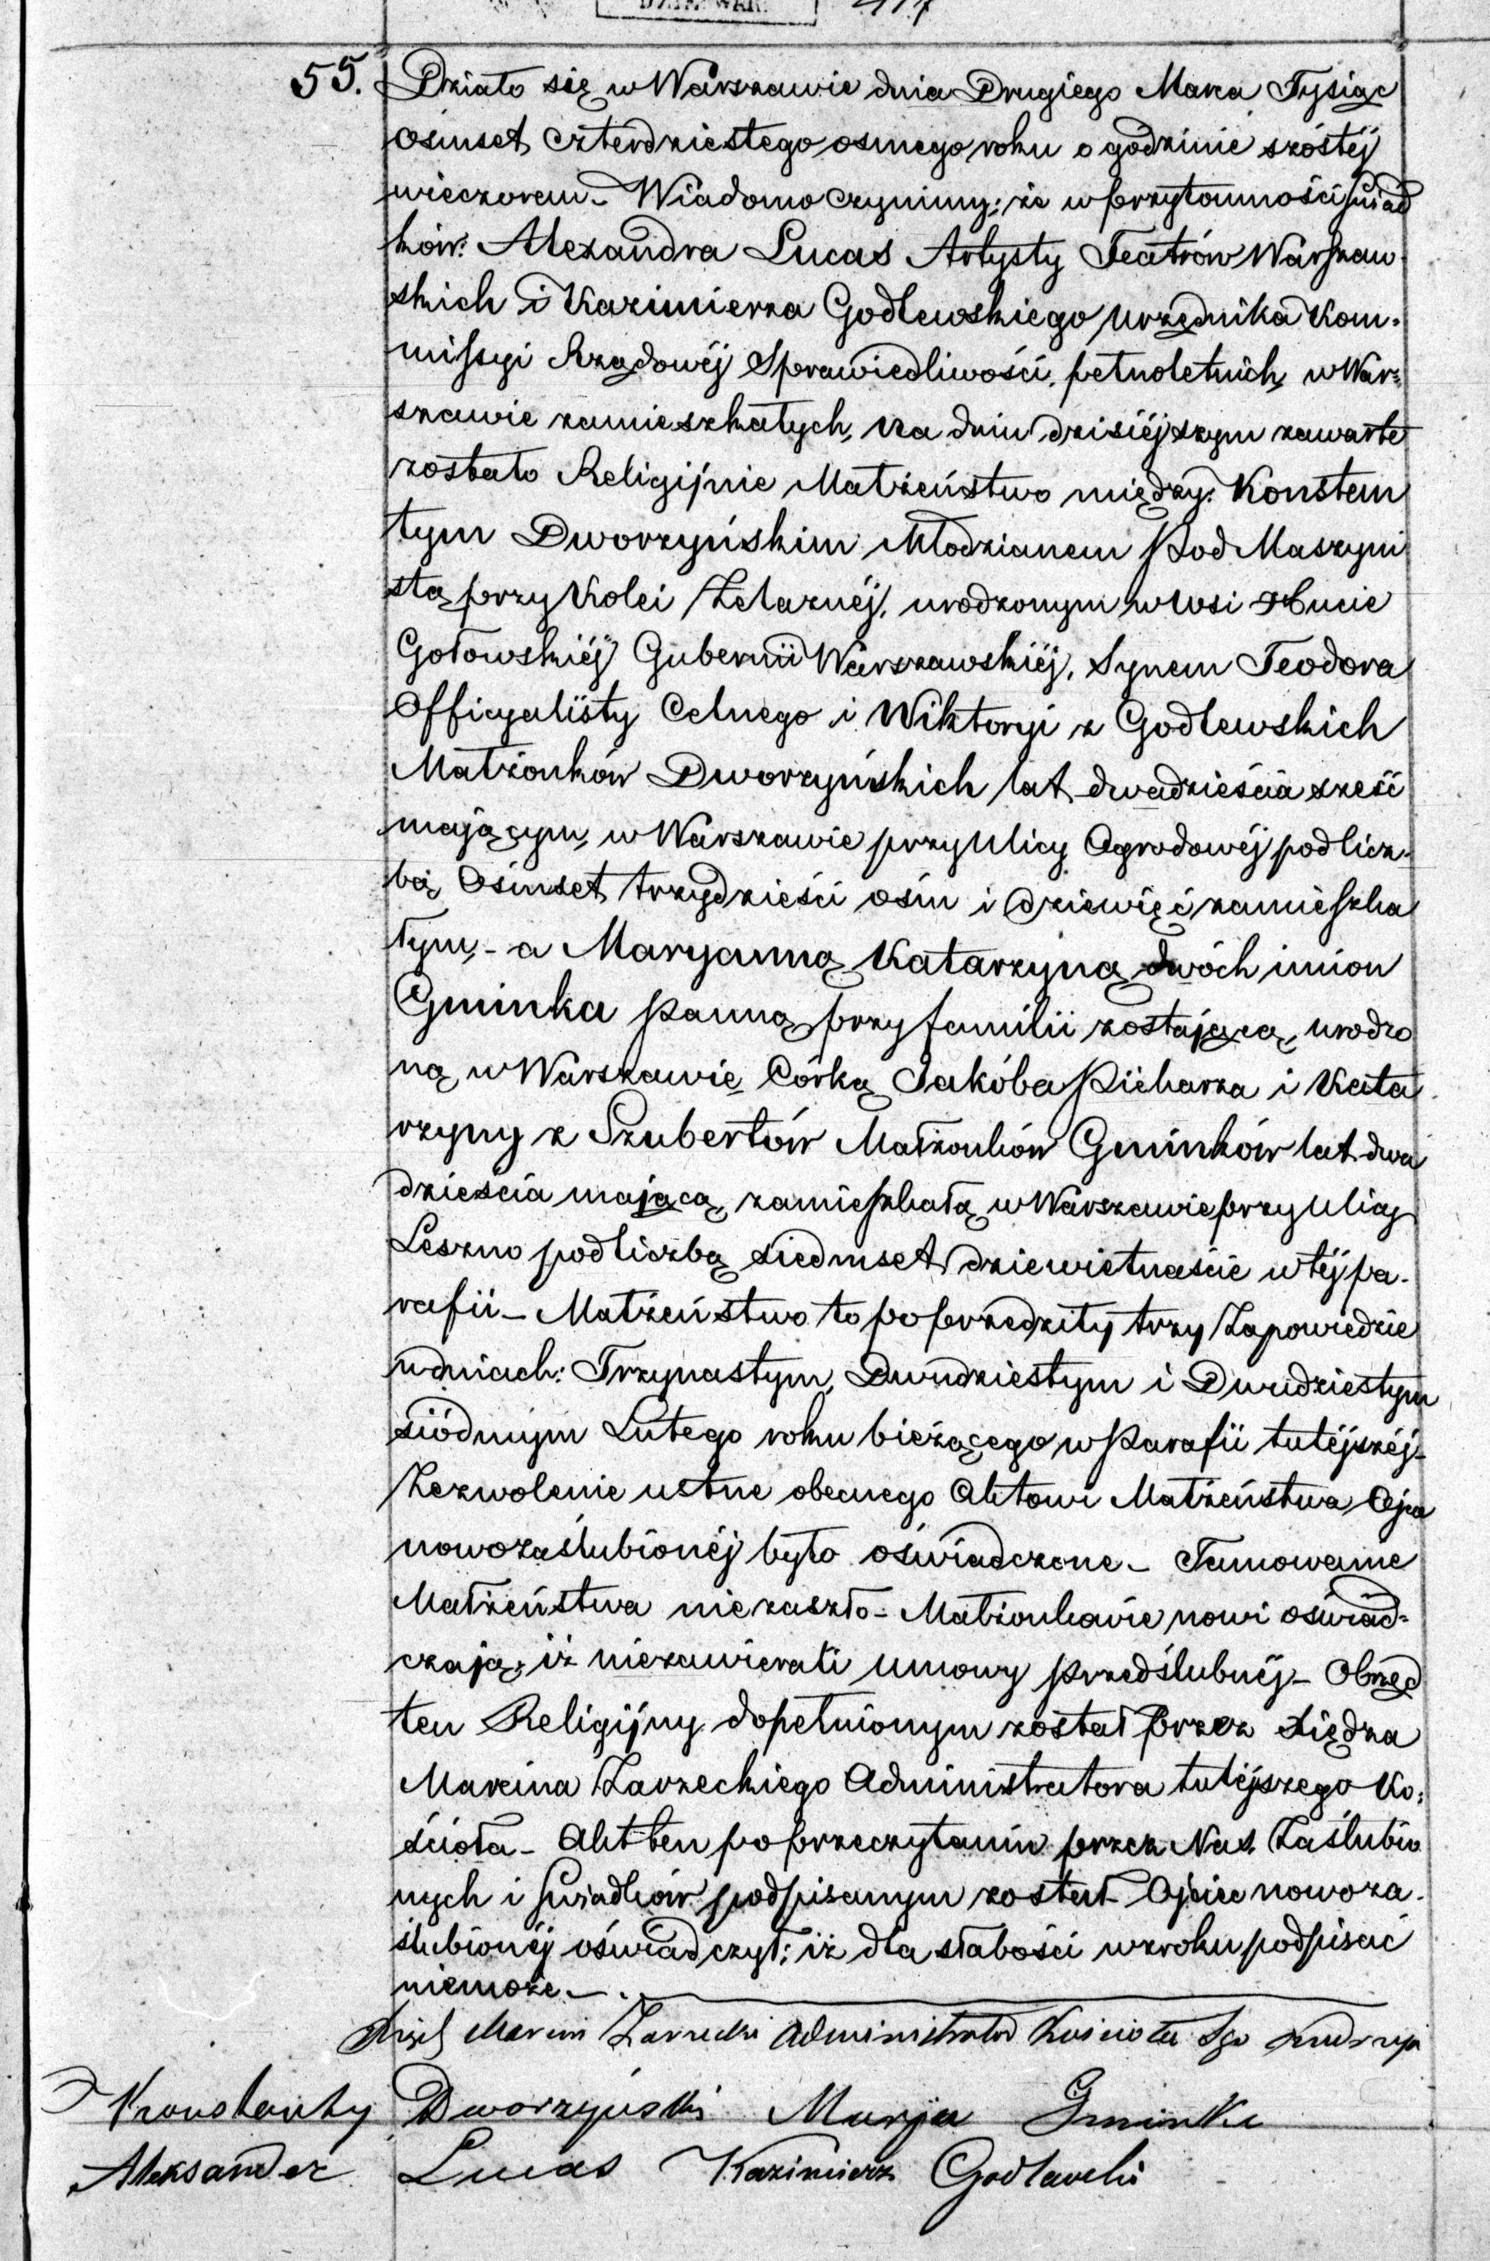 417
55. Działo się w Warszawie dnia Drugiego Marca Tysiąc
osmset czterdziestego osmego roku o godzinie szóstéj
wieczorem – Wiadomo czynimy; że w przytomności świad
ków: Alexandra Lucas Artysty Teatrów Warszaw-
skich i Kazimierza Godlewskiego Urzędnika Kom-
missyi Rządowéj Sprawiedliwości, pełnoletnich, w War-
szawie zamieszkałych, na dniu dzisiéjszym zawarte
zostało Religijnie Małżeństwo między: Konstan
tym Dworzyńskim Młodzianem Pod Maszyni
stą przy Kolei Żelaznéj, urodzonym w wsi Hucie
Gołowskiéj Gubernii Warszawskiéj, Synem Teodora
Officyalisty Celnego i Wiktoryi z Godlewskich
Małżonków Dworzyńskich lat dwadzieścia sześć
mającym, w Warszawie przy Ulicy Ogrodowéj pod licz-
bą Osmset trzydzieści osm i dziewięć zamieszka
łym, – a Maryanną Katarzyną dwóch imion
Gminka Panną przy familii zostającą, urodzo
ną w Warszawie Córką Jakóba Piekarza i Kata
rzyny z Szubertów Małżonków Gminków lat dwa
dzieścia mającą, zamieszkałą w Warszawie przy Ulicy
Leszno pod liczbą siedmset dziewietnaście w téj pa-
rafii – Małżeństwo to poprzedziły trzy Zapowiedzie
w dniach: Trzynastym, Dwudziestym i Dwudziestym
siódmym Lutego roku bieżącego w Parafii tutéjszéj –
Zezwolenie ustne obecnego Aktowi Małżeństwa Ojca
nowozaślubionéj było oświadczone – Tamowanie
Małżeństwa nie zaszło – Małżonkowie nowi oświad-
czają; iż niezawierali umowy przedślubnéj – Obrzęd
ten Religijny dopełnionym został przez Xiędza
Marcina Zarzeckiego Administratora tutéjszego Ko-
ścioła – Akt ten po przeczytaniu przez Nas, Zaślubio
nych i Świadków podpisanym został Ojciec nowoza-
ślubionéj oświadczył; iż dla słabości wzroku podpisać
niemoże. –
Marcin Zarzecki Administrator Kościoła Sgo Andrzeja
Konstanty Dworzyński Marja Gminka
Aleksander Lucas Kazimierz Godlewski